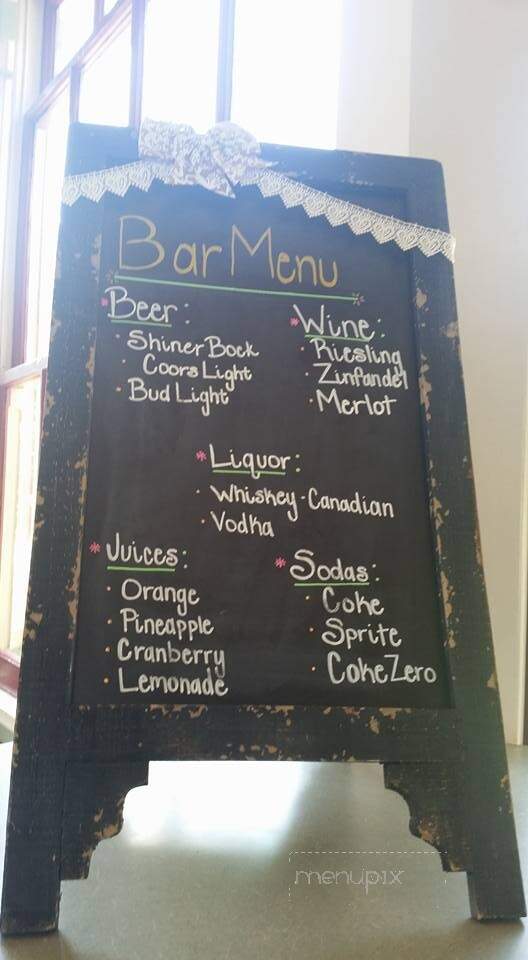 Bar Menu
*Beer:
· Shiner Bock
· Coors Light
· Bud Light
*Wine:
· Riesling
· Zinfandel
· Merlot
*Liquor:
· Whiskey-Canadian
· Vodka
*Juices:
· Orange
· Pineapple
· Cranberry
· Lemonade
*Sodas:
· Coke
· Sprite
· Coke Zero
menupix